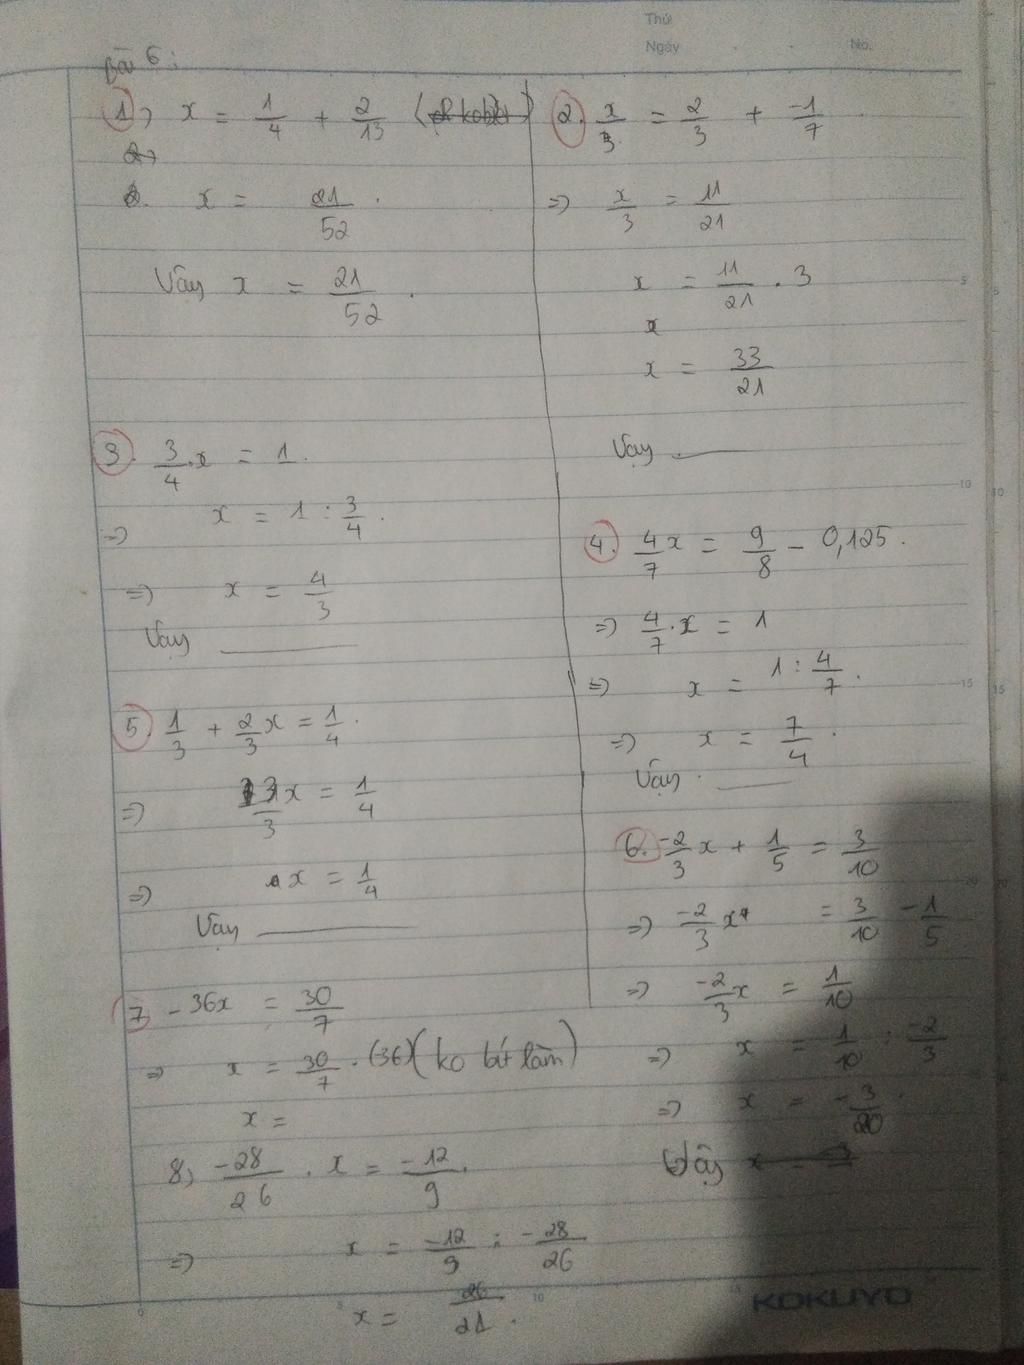 Thứ
Ngày No.
Bài 6:
1) x = 1/4 + 2/13
x = 21/52 .
Vậy x = 21/52 .
2. x/3 = 2/3 + -1/7
=> x/3 = 11/21
x = 11/21 . 3
x
x = 33/21
Vậy
3. 3/4 . x = 1.
=> x = 1 : 3/4 .
=> x = 4/3
Vậy
4. 4/7 x = 9/8 - 0,125.
=> 4/7 . x = 1
=> x = 1 : 4/7 .
=> x = 7/4 .
Vậy .
5. 1/3 + 2/3 x = 1/4 .
=> /3 x = 1/4
=> x = 1/4
Vậy
6. -2/3 x + 1/5 = 3/10
=> -2/3 x = 3/10 - 1/5
=> -2/3 x = 1/10
=> x = 1/10 : -2/3
=> x = -3/20 .
Vậy x =
7 - 36x = 30/7
=> x = 30/7 . (36) (ko bít làm)
x =
8) -28/26 . x = -12/9 .
=> x = -12/9 : -28/26
x = 26/21 .
5
10
15
20
0 5 10 15
KOKUYO